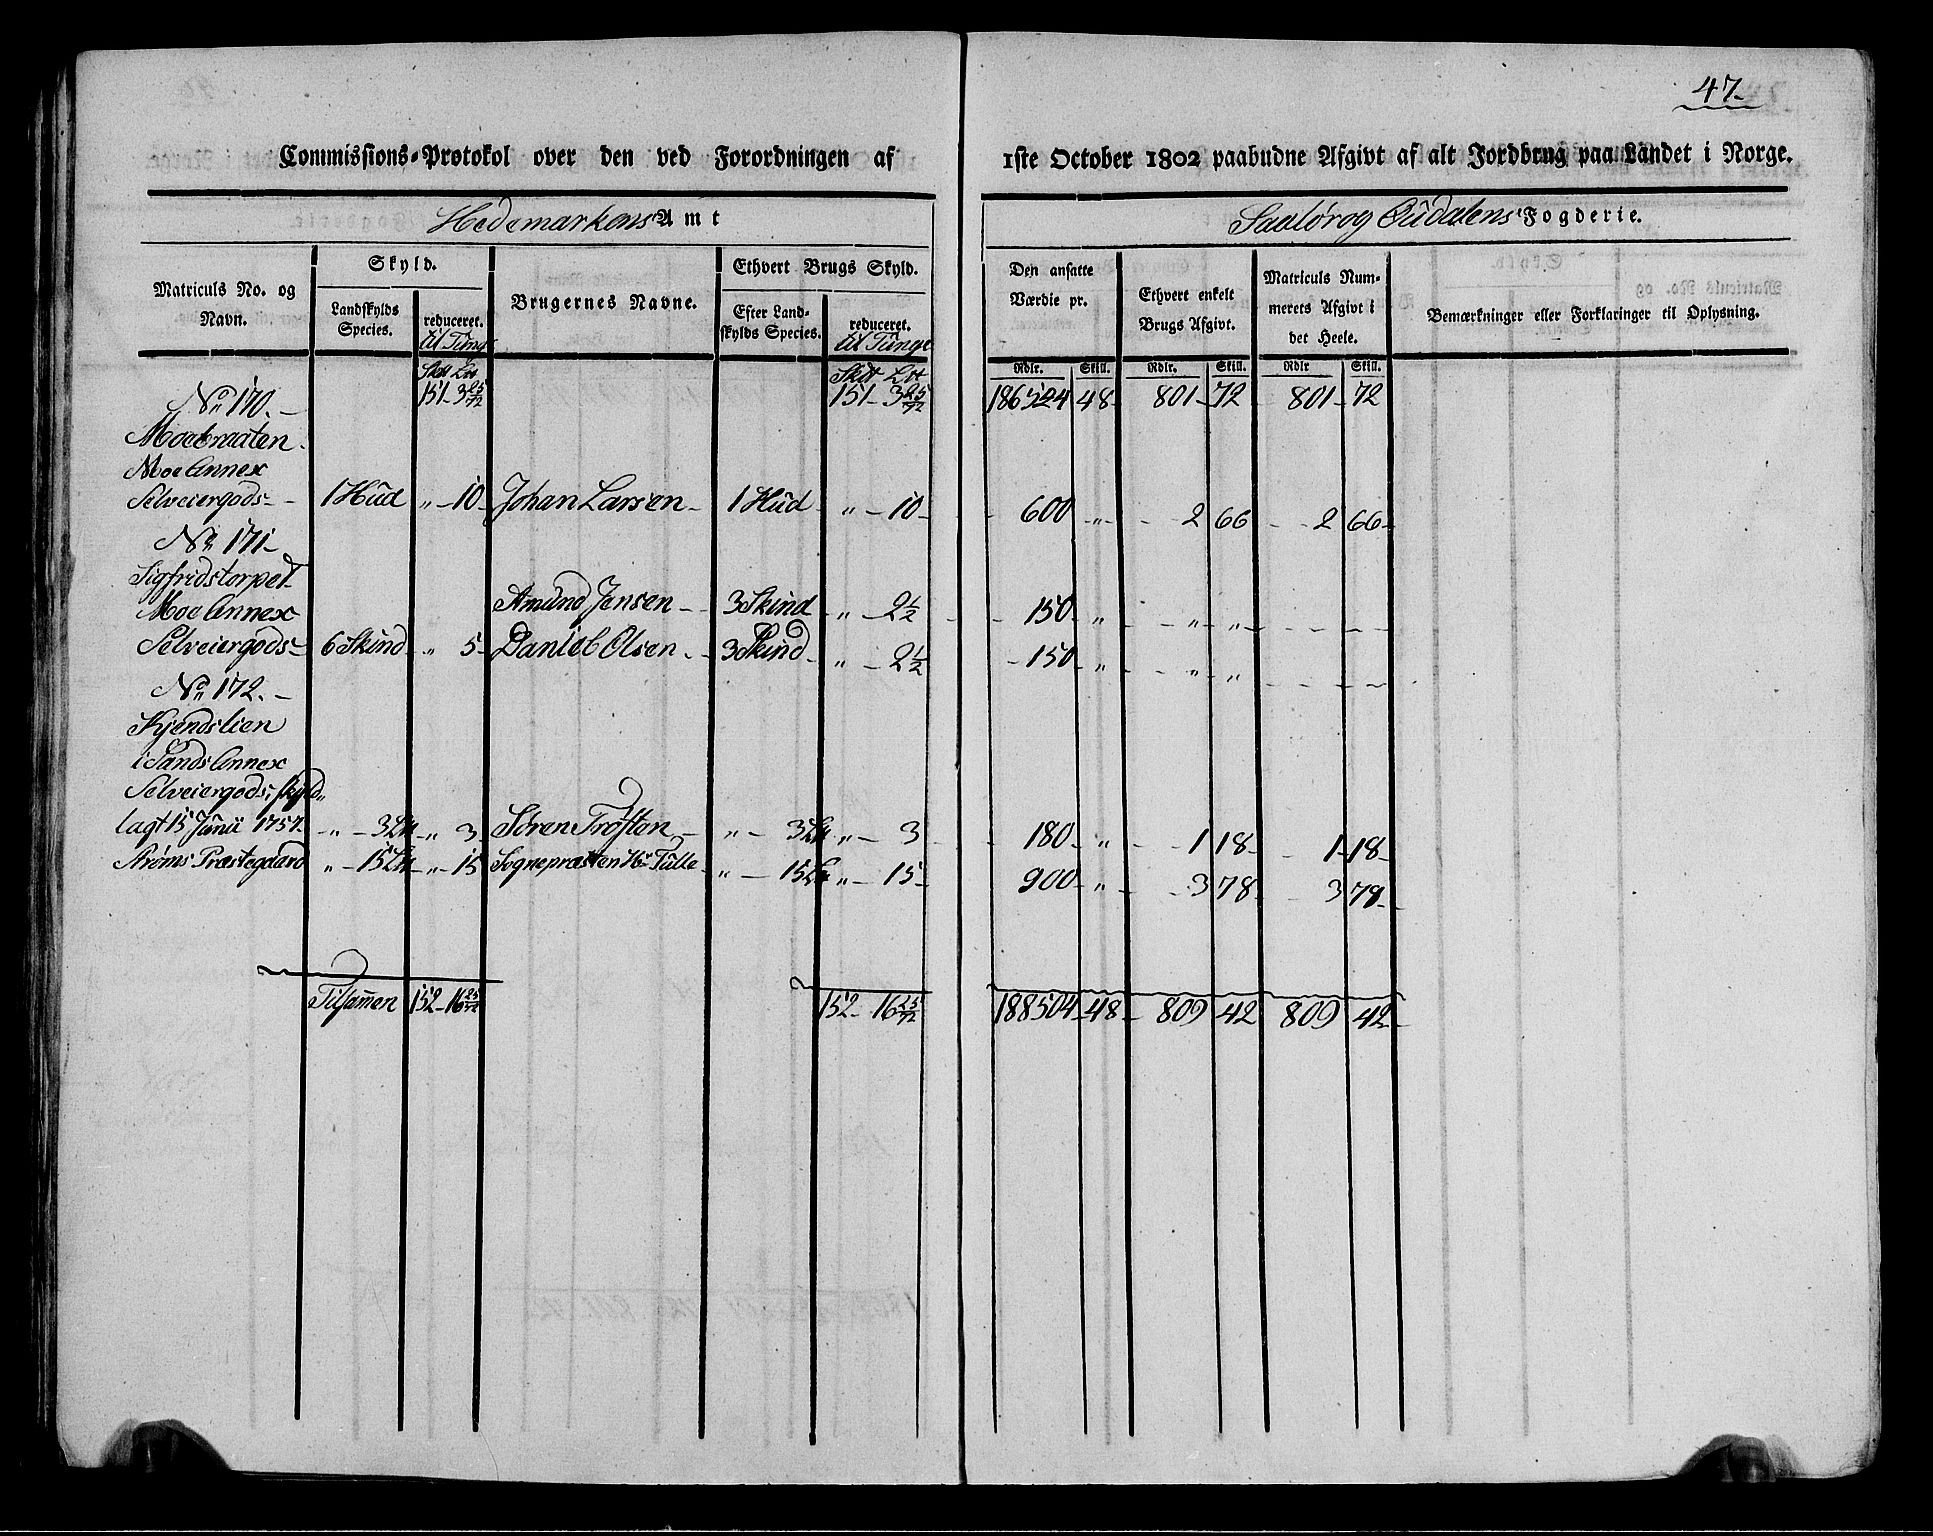 47.
Commissions-Protokol over den ved Forordningen af 1ste October 1802 paabudne Afgivt af alt Jordbrug paa Landet i Norge.
Hedemarkens Amt
Saulør og Oudalens Fogderie.
Matriculs No. og Navn.
Skyld.
Landskylds Species.
reduceret.
til Tunge
Brugernes Navne.
Ethvert Brugs Skyld.
Efter Landskylds Species.
reduceret.
til Tunge
Den ansatte Værdie pr.
Ethvert enkelt Brugs Afgivt.
Matriculs Nummerets Afgivt i det Heele.
Bemærkninger eller Forklaringer til Oplysning.
Rdlr. Skill. Rdlr. Skill. Rdlr Skill.
151 - 3 25/72 151 - 3 25/72 186524 48 - 801 - 72 801 - 72
No 170. -
Moebraaten
Moe Annex
Selveiergods - 1 Hud „ - 10 - Johan Larsen - 1 Hud „ - 10 - 600 „ - 2 66 - 2 66 -
No 171 -
Sigfridstorpet
Moe Annex Amund Jensen - 3 Skind „ - 2 1/2 150 „ - „ „
Selveiergods - 6 Skind „ 5 - Daniel Olsen - 3 Skind „ - 2 1/2 - 150 „ - „ „
No 172. -
Kjendslien
i Sands Annex
Selveiergods, skyld„
lagt 15 Junii 1757. „ - 3 „ 3 Sören Trøften - „ - 3 „ - 3 180 „ - 1 18 - 1 - 18 -
Strøms Præstegaard „ - 15 „ - 15 Sognepræsten Hr Tulle - „ - 15 „ - 15 - 900 „ - 3 78 - 3 78 -
Tilsammen 152 - 16 25/72 152 - 16 25/72 188504 - 48 - 809 42 809 42 -